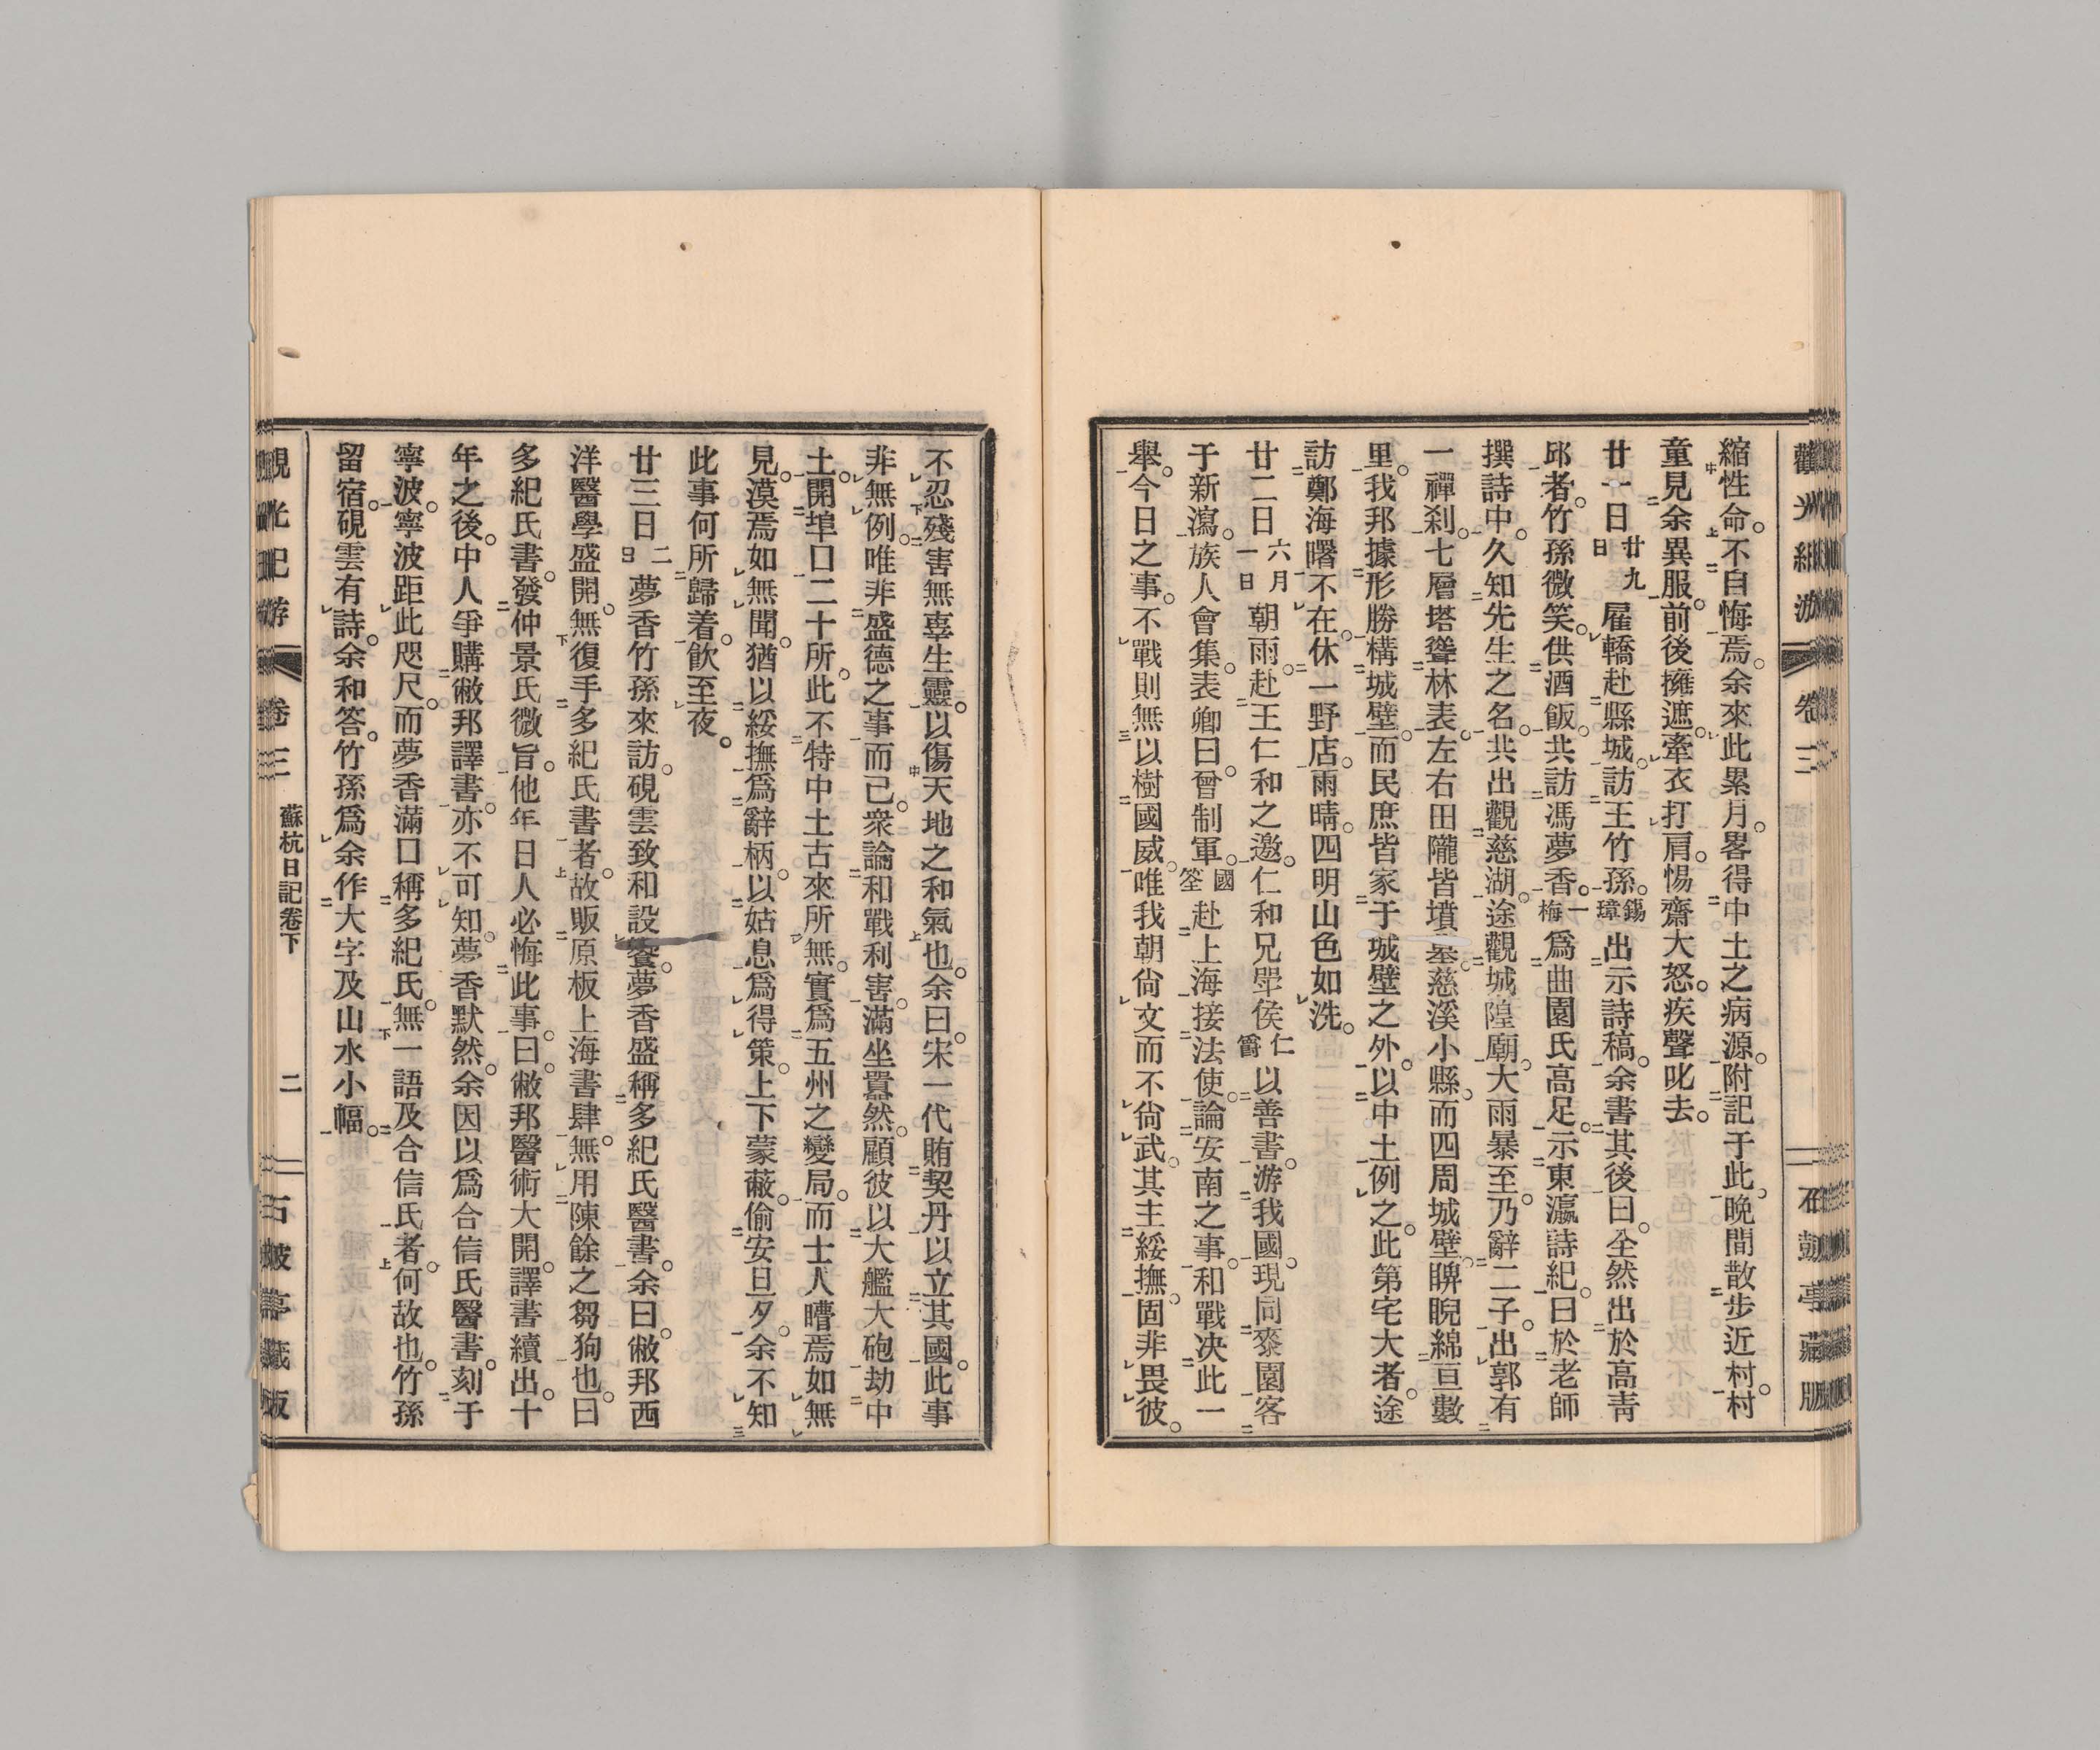 觀光紀游
卷三
石皷亭藏版
縮性命。不自悔焉。余來此累月。畧得中土之病源。附記于此。晚間散步近村。村
童見余異服。前後擁遮。牽衣打肩。惕齋大怒。疾聲叱去。
廿一日廿九日雇轎赴縣城。訪王竹孫。錫璋出示詩稿。余書其後曰。仝然出於高靑
邱者。竹孫微笑。供酒飯。共訪馮夢香。一梅爲曲園氏高足。示東瀛詩紀。曰於老師
撰詩中。久知先生之名。共出觀慈湖。途觀城隍廟。大雨暴至。乃辭二子。出郭有
一禪刹。七層塔聳林表。左右田隴皆墳墓。慈溪小縣。而四周城壁。睥睨綿亘數
里。我邦據形勝構城壁。而民庶皆家于城壁之外。以中土例之。此第宅大者。途
訪鄭海曙不在。休一野店。雨晴。四明山色如洗。
廿二日六月一日朝雨。赴王仁和之邀。仁和兄斝侯仁爵以善書。游我國。現同桼園客
于新瀉。族人會集。表卿曰。曾制軍。國筌赴上海接法使。論安南之事。和戰决此一
擧。今日之事。不戰則無以樹國威。唯我朝尙文而不尙武。其主綏撫。固非畏彼。
不忍殘害無辜生靈。以傷天地之和氣也。余曰。宋一代賄契丹以立其國。此事
非無例。唯非盛德之事而已。衆論和戰利害。滿坐囂然。顧彼以大艦大砲劫中
土。開埠口二十所。此不特中土古來所無。實爲五州之變局。而士人瞢焉如無
見。漠焉如無聞。猶以綏撫爲辭柄。以姑息爲得策。上下蒙蔽。偷安旦夕。余不知
此事何所歸着。飮至夜。
廿三日二日夢香竹孫來訪。硯雲致和設饗。夢香盛稱多紀氏醫書。余曰。敝邦西
洋醫學盛開。無復手多紀氏書者。故販原板上海書肆。無用陳餘之芻狗也。曰
多紀氏書。發仲景氏微旨。他年日人必悔此事。曰。敝邦醫術大開。譯書續出。十
年之後。中人爭購敝邦譯書。亦不可知。夢香默然。余因以爲合信氏醫書。刻于
寧波。寧波距此咫尺。而夢香滿口稱多紀氏。無一語及合信氏者。何故也。竹孫
留宿。硯雲有詩。余和答。竹孫爲余作大字及山水小幅。
觀光紀游
卷三
蘇杭日記卷下
二
石皷亭藏版